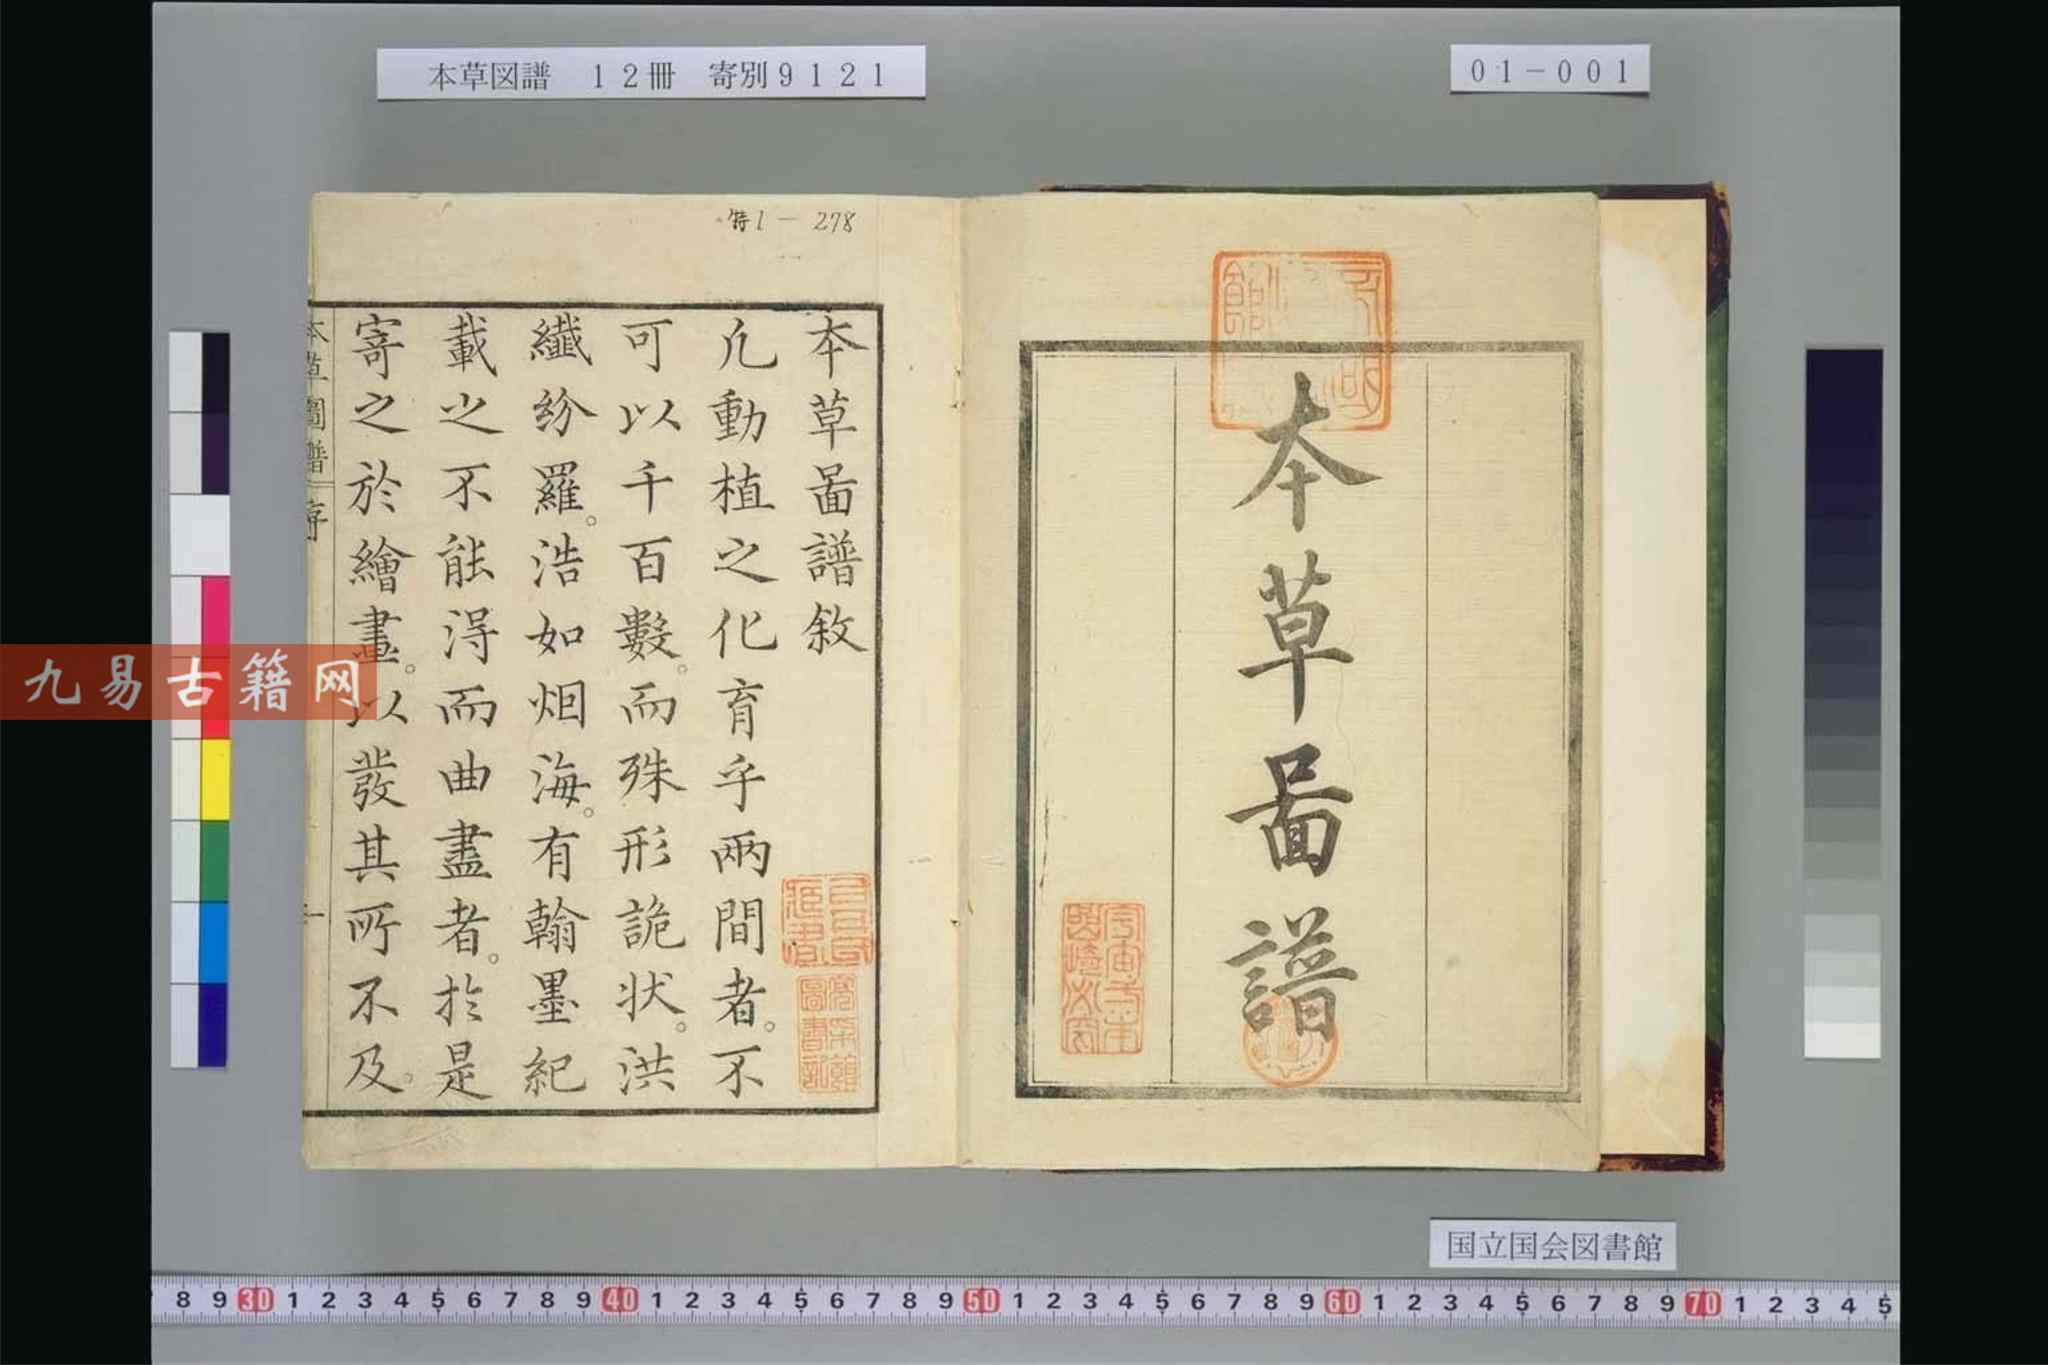 本草図譜　12冊　寄別9121
01-001
特1-278
本草啚譜
本草啚譜敘
凢動植之化育乎兩間者。不
可以千百數。而殊形詭状。洪
纎紛羅。浩如烟海。有翰墨紀
載之不能得而曲盡者。於是
寄之於繪畫。以發其所不及。
本草圖譜 序 一
九易古籍网
国立国会図書館
8 9 30 1 2 3 4 5 6 7 8 9 40 1 2 3 4 5 6 7 8 9 50 1 2 3 4 5 6 7 8 9 60 1 2 3 4 5 6 7 8 9 70 1 2 3 4 5